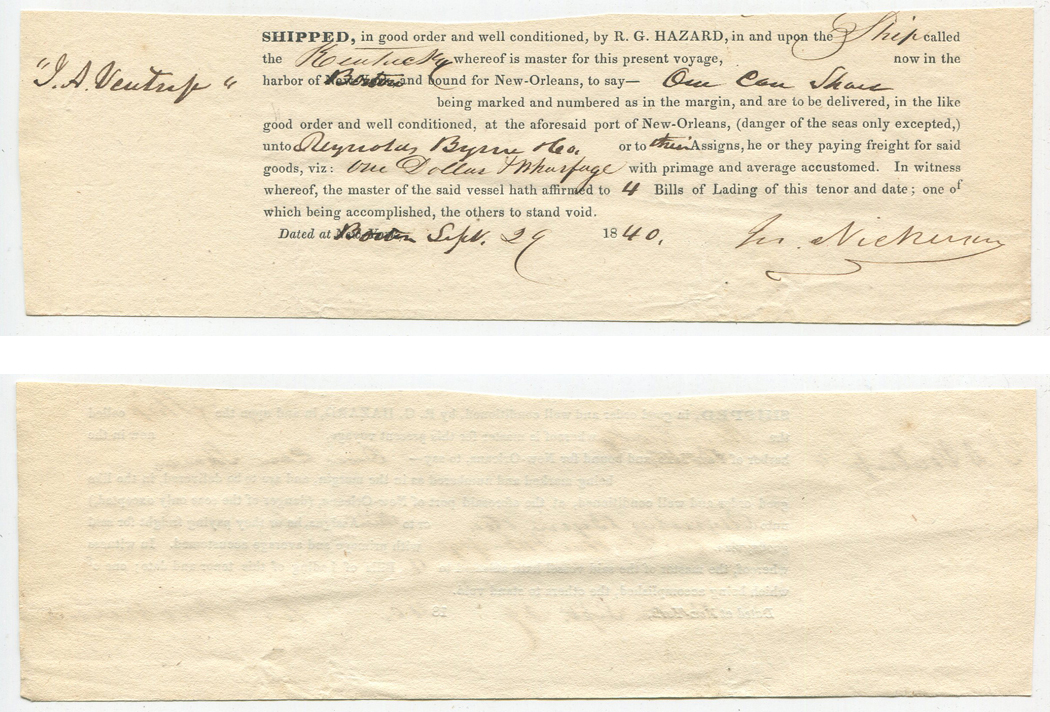 SHIPPED, in good order and well conditioned, by R. G. HAZARD, in and upon the Ship called
the Kentucky whereof is master for this present voyage, now in the
"J. A. Ventrap"
harbor of Boston and bound for New-Orleans, to say— One Case Shoes
being marked and numbered as in the margin, and are to be delivered, in the like
good order and well conditioned, at the aforesaid port of New-Orleans, (danger of the seas only excepted,)
unto Reynolds Byrne & Co. or to their Assigns, he or they paying freight for said
goods, viz: One Dollar & Wharfage with primage and average accustomed. In witness
whereof, the master of the said vessel hath affirmed to 4 Bills of Lading of this tenor and date; one of
which being accomplished, the others to stand void.
Dated at Boston Sept. 29 1840. Nickerson